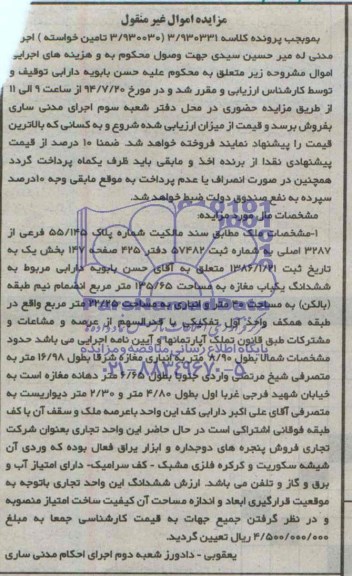 مزایده اموال غیر منقول
بموجب پرونده کلاسه ۳/۹۳۰۳۳۱ (۳/۹۳۰۰۳۰ تامین خواسته) اجرای
مدنی له میر حسین سیدی جهت وصول محکوم به و هزینه های اجرایی
اموال مشروحه زیر متعلق به محکوم علیه حسن بابویه دارابی توقیف و
توسط کارشناس ارزیابی و مقرر شد و در مورخ ۹۴/۷/۲۰ از ساعت ۹ الی ۱۱
از طریق مزایده حضوری در محل دفتر شعبه سوم اجرای مدنی ساری
بفروش برسد و قیمت از میزان ارزیابی شده شروع و به کسانی که بالاترین
قیمت را پیشنهاد نمایند فروخته خواهد شد. ضمنا ۱۰ درصد از قیمت
پیشنهادی نقدا از برنده اخذ و مابقی باید ظرف یکماه پرداخت گردد
همچنین در صورت انصراف یا عدم پرداخت به موقع مابقی وجه ۱۰درصد
سپرده به نفع صندوق دولت ضبط خواهد شد.
مشخصات مال مورد مزایده:
۱-مشخصات ملک مطابق سند مالکیت شماره پلاک ۵۵/۱۴۵ فرعی از
۳۲۸۷ اصلی به شماره ثبت ۵۷۴۸۲ دفتر ۴۲۵ صفحه ۱۴۷ بخش یک به
تاریخ ثبت ۱۳۸۶/۱/۲۱ متعلق به آقای حسن بابویه دارابی مربوط به
ششدانگ یکباب مغازه به مساحت ۱۳۵/۶۵ متر مربع انضمام نیم طبقه
(بالکن) به مساحت ۴۰ متر و انباری به مساحت ۲۲/۲۵ متر مربع واقع در
طبقه همکف واحد اول تفکیکی با قدرالسهم از عرصه و مشاعات و
مشترکات طبق قانون تملک آپارتمانها و آیین نامه اجرایی می باشد حدود
مشخصات شمالا بطول ۸/۹۰ متر به انباری مغازه شرقا بطول ۱۶/۹۸ متر به
متصرفی شیخ مرتضی واردی جنوبا بطول ۶/۶۵ متر دهانه مغازه است به
خیابان شهید فرجی غربا اول بطول ۴/۸۰ متر و ۲/۳۰ متر دیواریست به
متصرفی آقای علی اکبر دارابی کف این واحد باعرصه ملک و سقف آن با کف
طبقه فوقانی اشتراکی است در حال حاضر این واحد تجاری بعنوان شرکت
تجاری فروش پنجره های دوجداره و ابزار یراق فعال بوده که وردی آن
شیشه سکوریت و کرکره فلزی مشبک - کف سرامیک- دارای امتیاز آب و
برق و گاز و تلفن می باشد. ارزش ششدانگ این واحد تجاری باتوجه به
موقعیت قرارگیری ابعاد و اندازه مساحت آن کیفیت ساخت امتیاز منصوبه
و در نظر گرفتن جمیع جهات به قیمت کارشناسی جمعا به مبلغ
۴/۵۰۰/۰۰۰/۰۰۰ ریال تعیین گردید.
یعقوبی - دادورز شعبه دوم اجرای احکام مدنی ساری
پایگاه اطلاع رسانی مناقصه و مزایده
۰۲۱-۸۸۳۴۹۶۷۰-۵